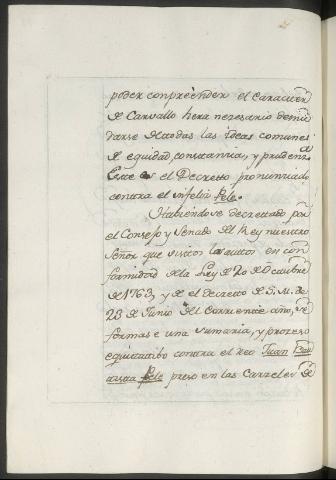 poder conprèender el Caracter
de Carvallo hera necesario desnu
darse de todas las ideas comunes
de equidad, constancia, y prudencia
Este es el Decretto pronunciado
contra el infeliz Pele.
Haviendose decrettado por
el Consejo y Senado del Rey nuestro
Señor que vistos los autos en con
formidad de la Ley de 20 de Octubre
de 1763, y de el decreto de S. M. de
23 de Junio del Corriente año, se
formase una sumaria, y proceso
equitatibo contra el reo Juan Bau
tista Pele preso en las Carzeles de